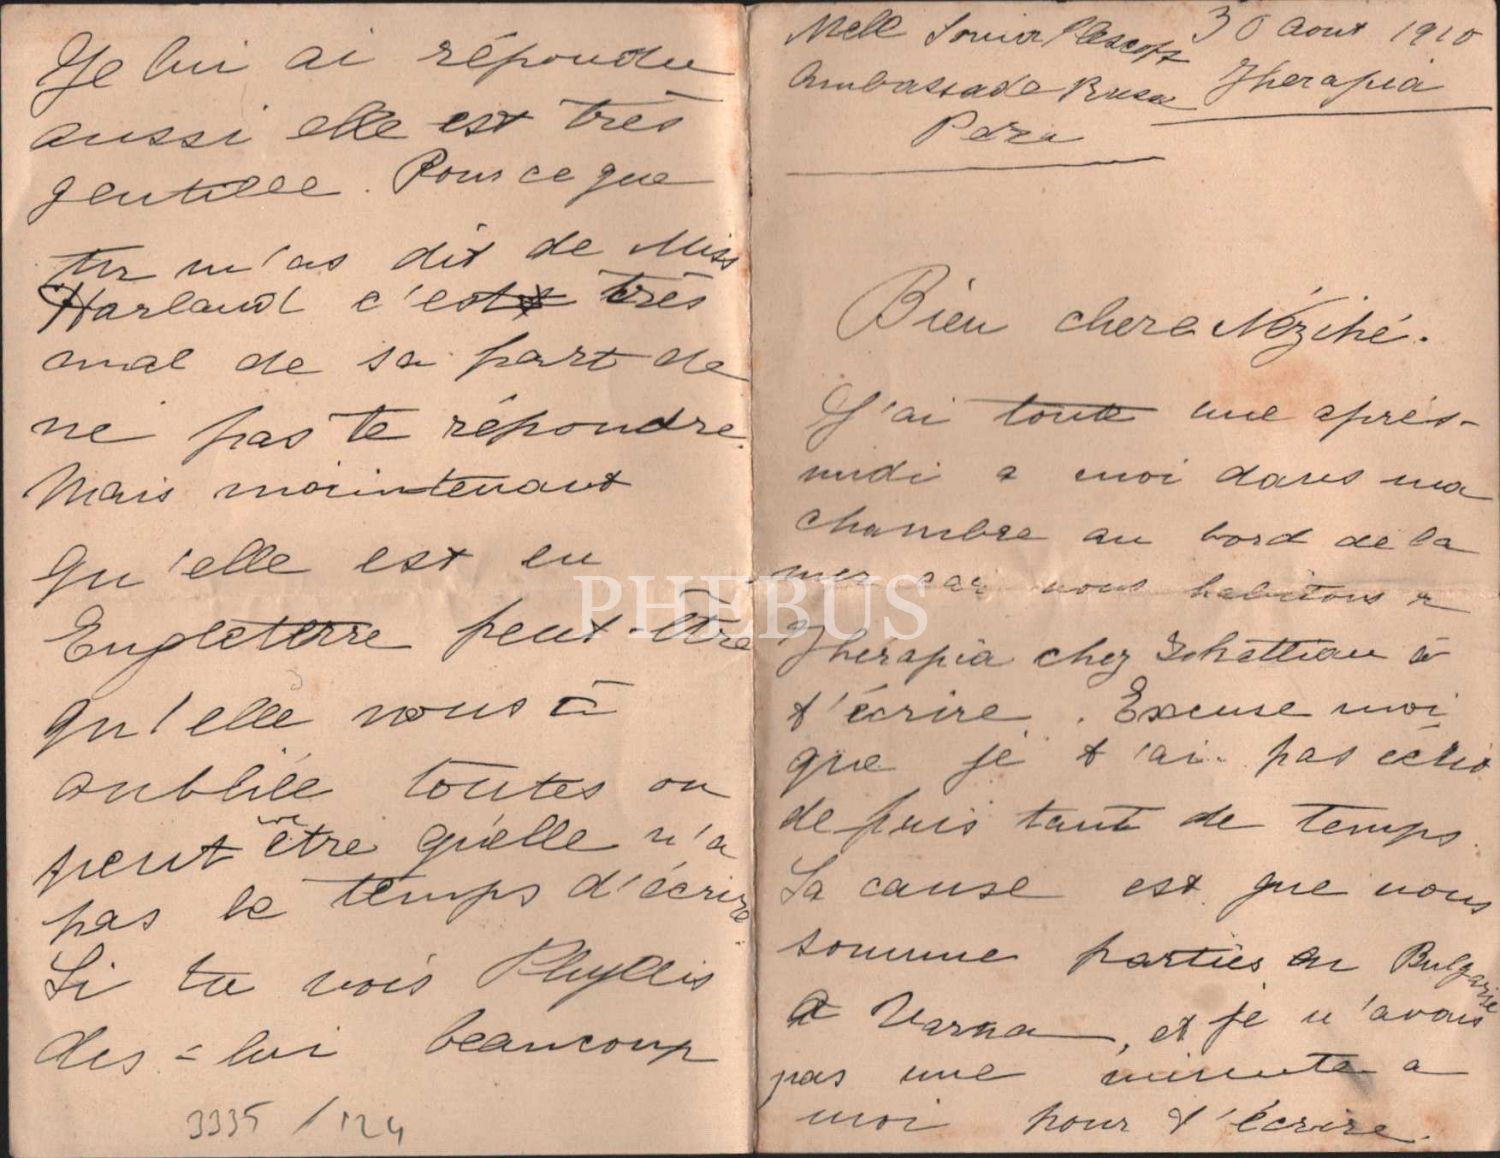 Melle Sonia
30 Aout 1910
Ambassade Russe
Therapia
Pera
Bien chere Nézihé.
J'ai toute une après-
midi a moi dans ma
chambre au bord de la
mer car nous habitons a
Thérapia chez à
t'écrire. Excuse moi
que je t'ai pas écrio
depuis tant de temps.
La cause est que nous
somme parties en Bulgarie
a Varna, et je n'avais
pas une minute a
moi pour t'écrire.
Je lui ai répondu
aussi elle est très
gentille. Pour ce que
tu m'as dit de Miss
Harland c'est très
mal de sa part de
ne pas te répondre.
Mais maintenant
qu'elle est en
Engleterre peut-être
qu'elle nous à
oubliée toutes ou
peut être qu'elle n'a
pas le temps d'écrire.
Si tu vois Phyllis
des-lui beaucoup
3335/124
PHEBUS